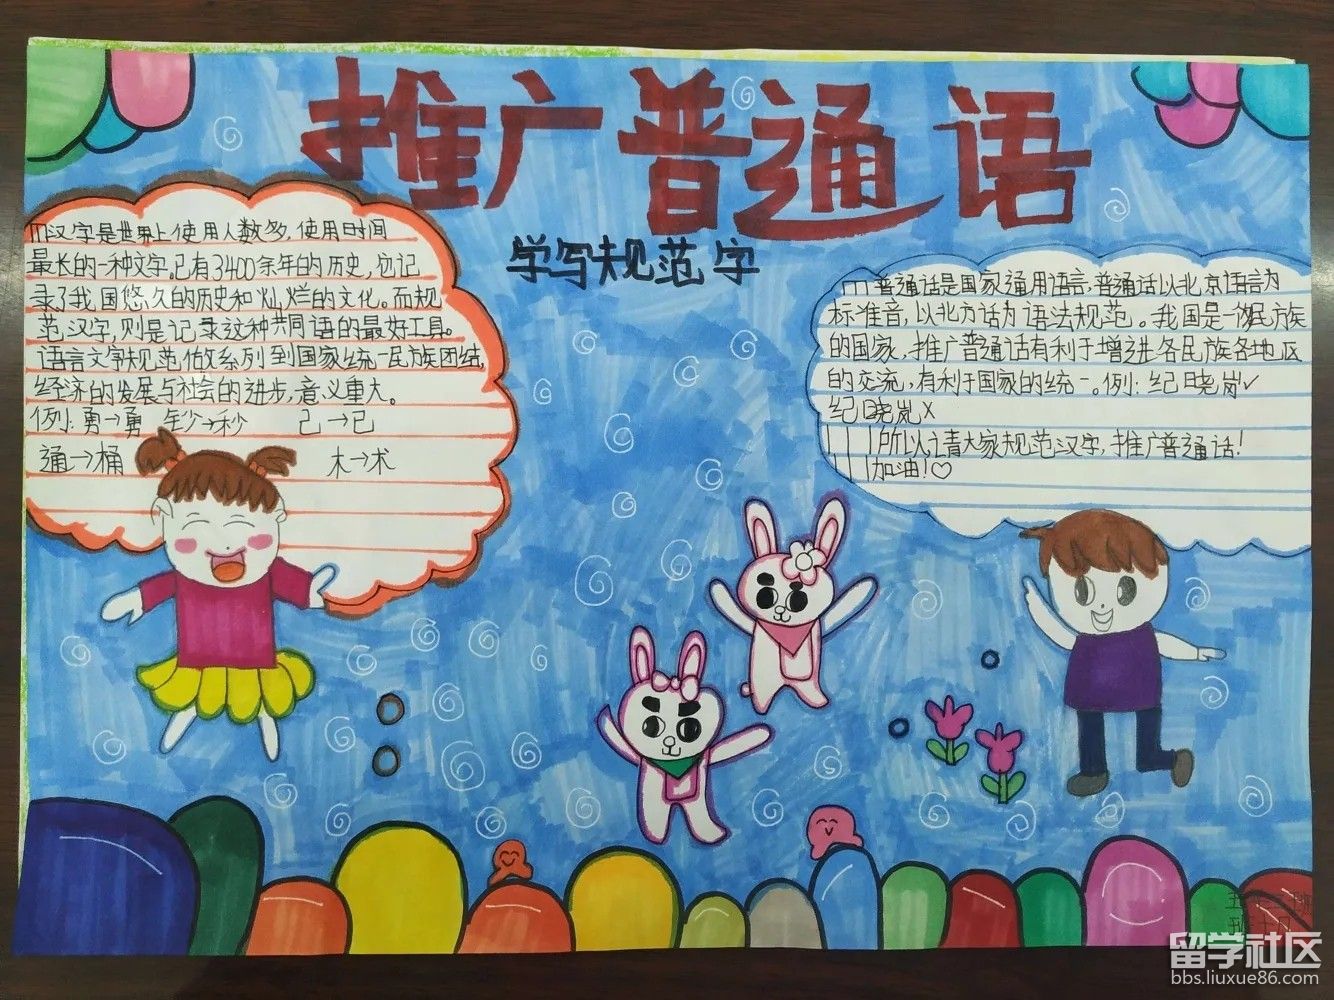 推广普通语
学写规范字
汉字是世界上使用人数多，使用时间
最长的一种文字，已有3400余年的历史，它记
录了我国悠久的历史和灿烂的文化。而规
范汉字，则是记录这种共同语的最好工具。
语言文字规范做系列到国家统一民族团结，
经济的发展与社会的进步，意义重大。
例：勇→勇 秒→秒 己→已
通→桶 木→术
普通话是国家通用语言，普通话以北京语言为
标准音，以北方话为语法规范。我国是一个多民族
的国家，推广普通话有利于增进各民族各地区
的交流，有利于国家的统一。例：纪晓岚✓
纪晓岚×
所以让请大家规范汉字，推广普通话！
加油！♡
留学社区
bbs.liuxue86.com